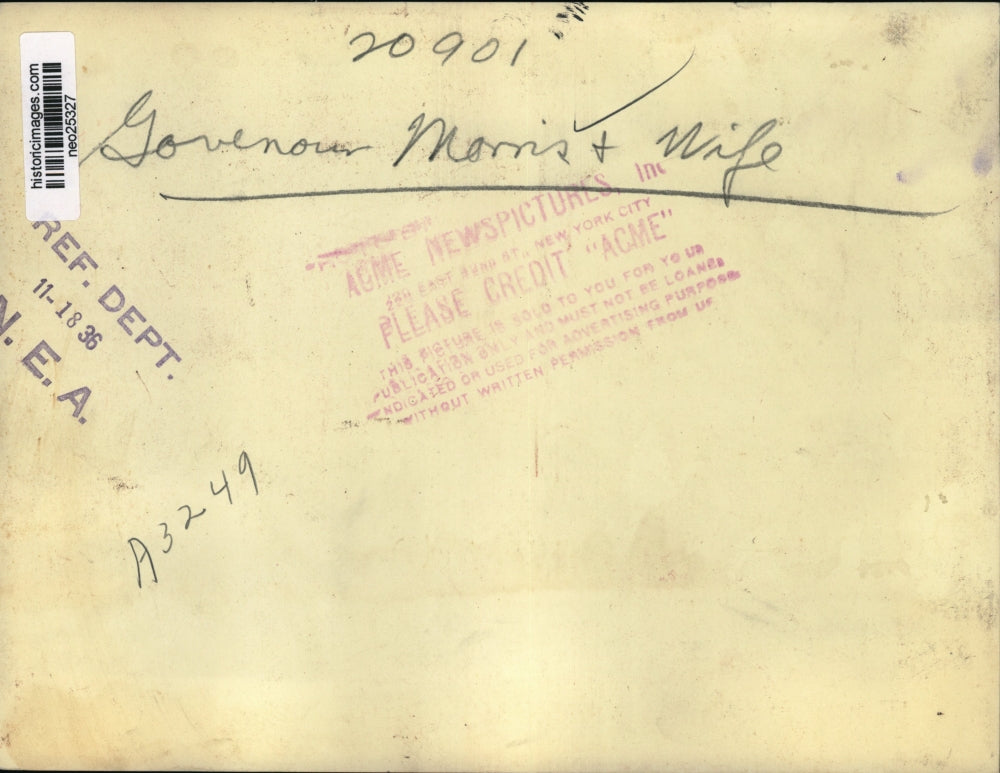 20901
Govenour Morris + Wife
historicimages.com
neo25327
REF. DEPT.
11-18 36
N. E. A.
ACME NEWSPICTURES, Inc
EAST 42ND ST., NEW YORK CITY
PLEASE CREDIT "ACME"
THIS PICTURE IS SOLD TO YOU FOR YOUR
PUBLICATION ONLY AND MUST NOT BE LOANED
SYNDICATED OR USED FOR ADVERTISING PURPOSES
WITHOUT WRITTEN PERMISSION FROM US
A3249